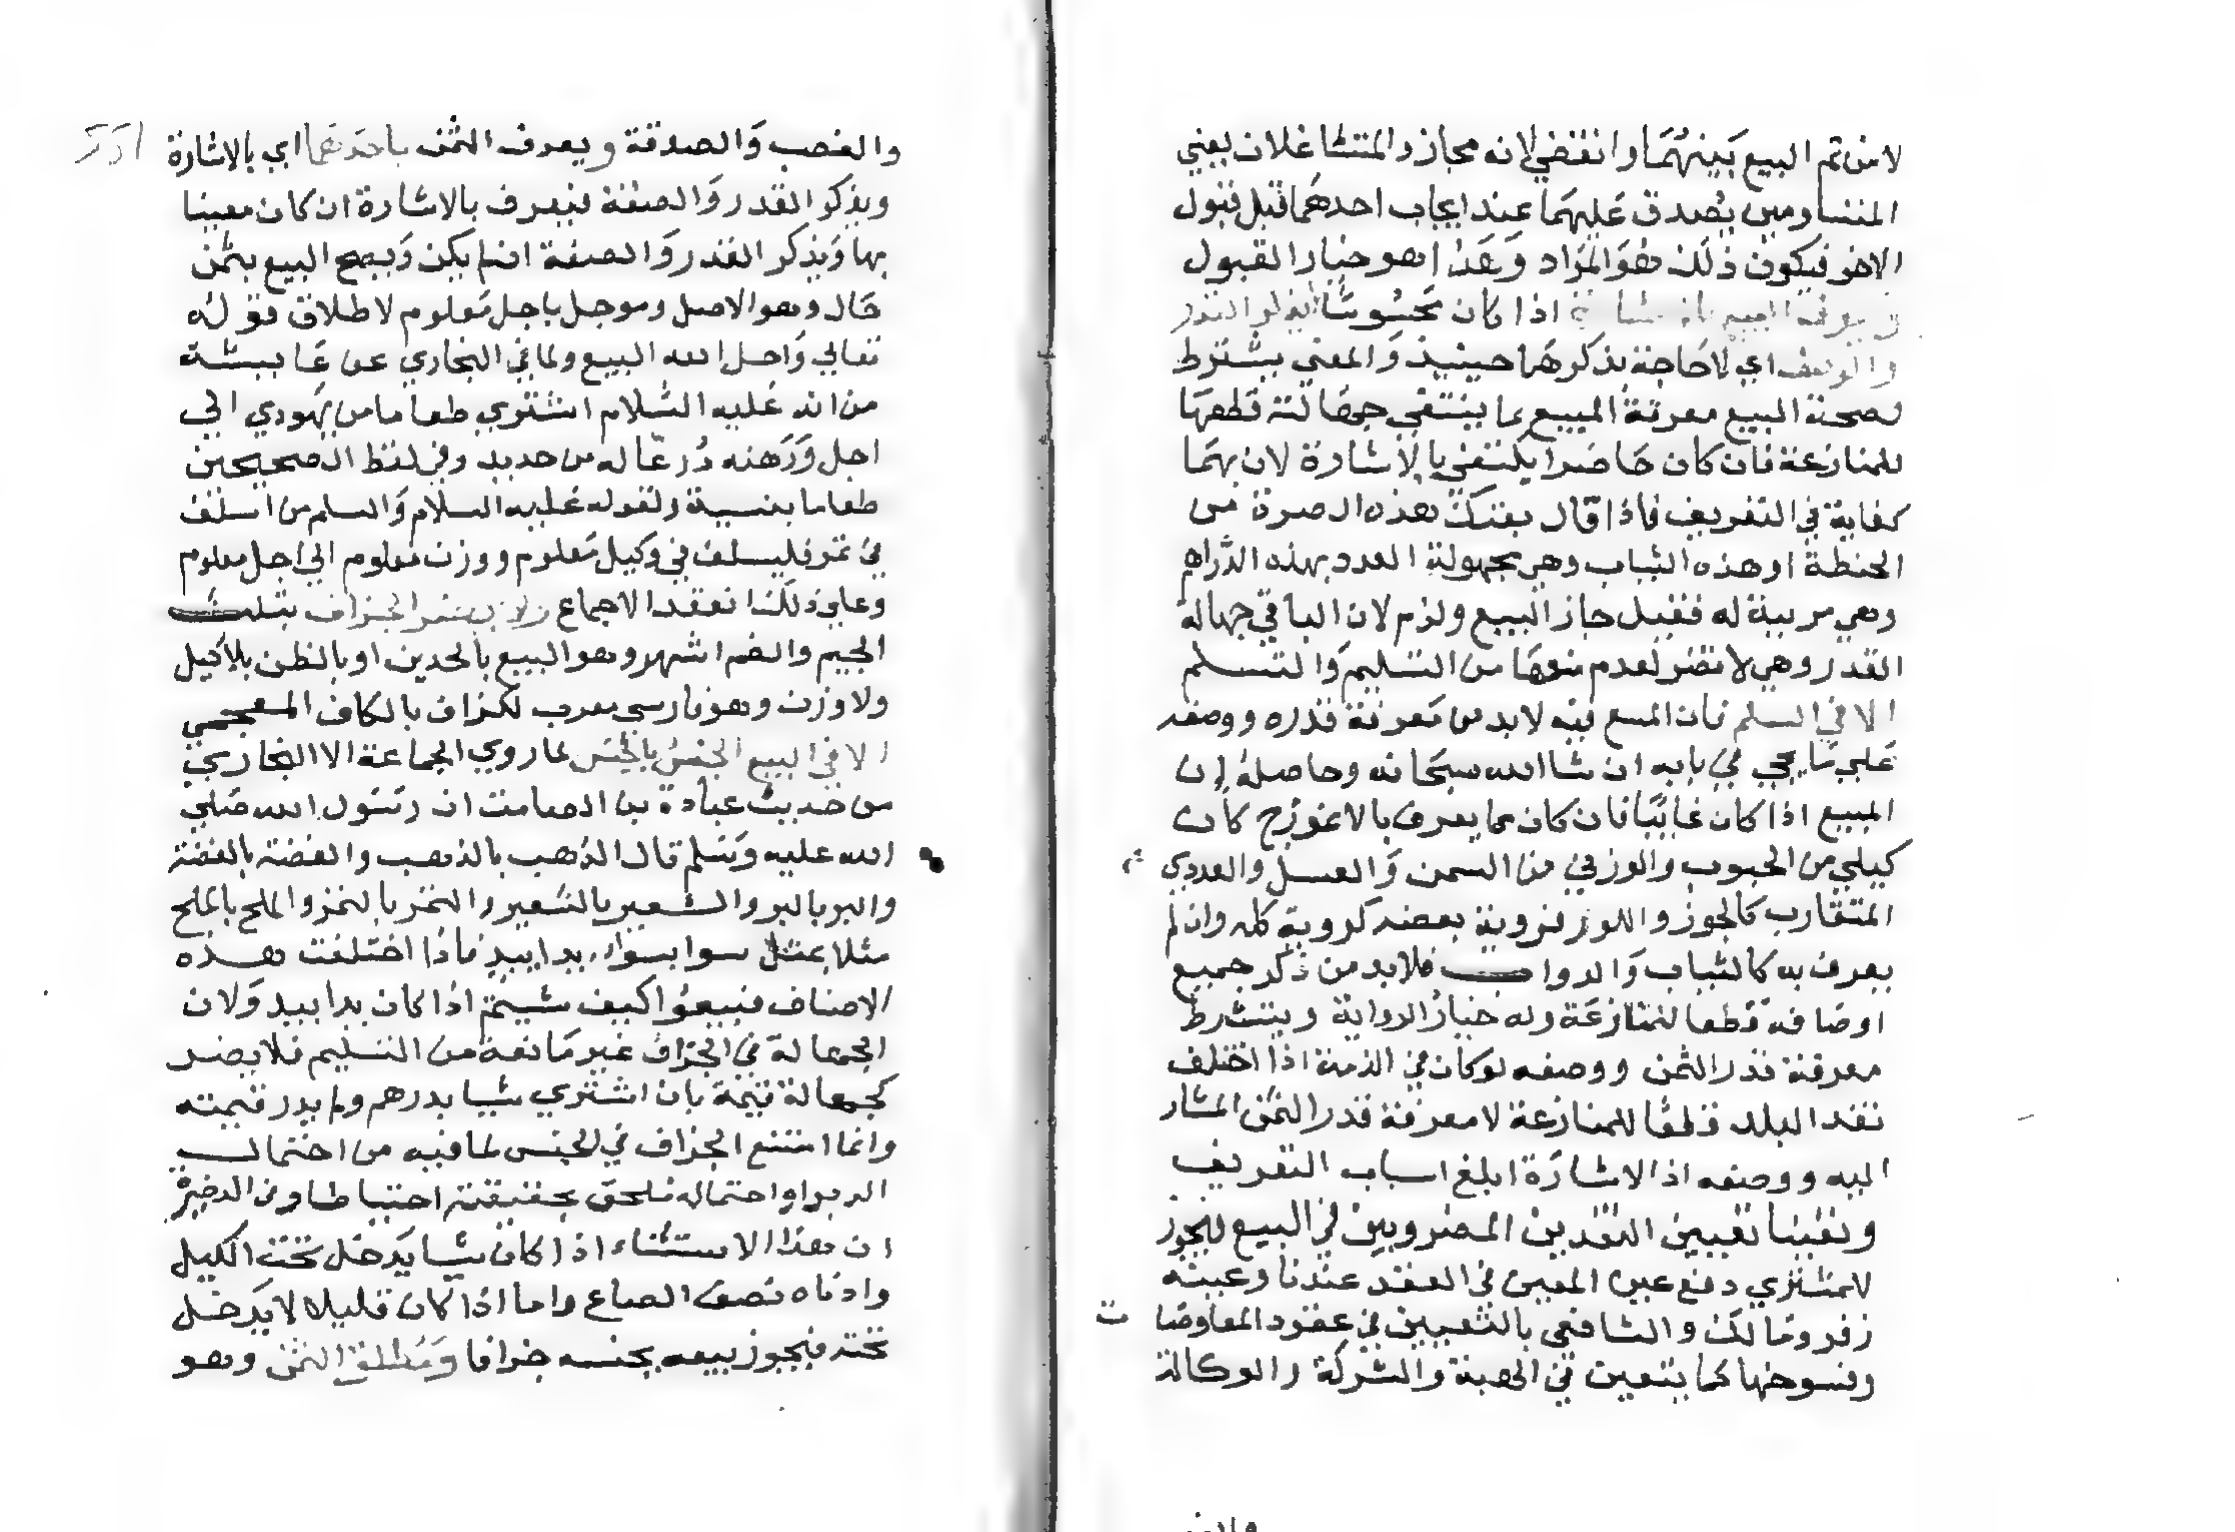 لا من تم البيع بينهما وانقضي لانه مجاز والمتشاغلان يعني
المتساومين يصدق عليهما عند ايجاب احدهما قبل قبول
الاخر فيكون ذلك هو المراد وهذا هو خيار القبول
ويعرف المبيع بالاشارة اذا كان محسوسا لا بذكر القدر
والوصف اي لا حاجة بذكرهما حينيذ والمعني يشترط
لصحة البيع معرفة المبيع بما ينتفي جهالته قطعا
للمنازعة فان كان حاضرا يكتفي بالاشارة لان بهما
كفاية في التعريف فاذا قال بعتك هذه الصرة من
الحنطة او هذه الثياب وهي مجهولة العدد بهذه الدراهم
وهي مرييه له فقبل جاز البيع ولزم لان الباقي جهالة
القدر وهي لا تضر لعدم منعها من التسليم والتسلم
الا في السلم فان المبيع فيه لابد من معرفة قدره ووصفه
علي ما يجي في بابه ان شا الله سبحانه وحاصله ان
المبيع اذا كان غائبا فان كان مما يعرف بالانموذج كان
كيلي من الحبوب والوزني من السمن والعسل والعددي
المتقارب كالجوز واللوز فروية بعضه كروية كله وان لم
يعرف به كالثياب والدواب فلابد من ذكر جميع
اوصافه قطعا للمنازعة وله خيار الرواية ويشترط
معرفة قدر الثمن ووصفه لو كان في الذمة اذا اختلف
نقد البلد قطعا للمنازعة لا معرفة قدر الثمن المشار
اليه ووصفه اذ الاشارة ابلغ اسباب التعريف
ونفينا تعيين النقدين المضروبين في البيع فيجوز
للمشتري دفع عين المعين في العقد عندنا وعينه
زفر ومالك والشافعي بالتعيين في عقود المعاوضات
وفسوخها كما يتعين في الهبة والشركة والوكالة
والغصب والصدقة ويعرف الثمن باحدهما اي بالاشارة
ويذكر القدر والصفة فيعرف بالاشارة ان كان معينا
بها ويذكر القدر والصفة ان لم يكن ويصح البيع بثمن
حال وهو الاصل وموجل باجل معلوم لاطلاق قوله
تعالي واحل الله البيع ولما في البخاري عن عايشة
من انه عليه السلام اشتري طعاما من يهودي الي
اجل ورهنه درعا له من حديد وفي لفظ الصحيحين
طعاما بنسية ولقوله عليه السلام والسلم من اسلف
في تمر فليسلف في وكيل معلوم ووزن معلوم الي اجل معلوم
وعلي ذلك انعقد الاجماع الجزاف بتثليث
الجيم والضم اشهر وهو البيع بالحدس او بالظن بلا كيل
ولا وزن وهو فارسي معرب لكزاف بالكاف المعجمي
الا في البيع الجنس بالجنس لما روي الجماعة الا البخاري
من حديث عبادة بن الصامت ان رسول الله صلي
الله عليه وسلم قال الذهب بالذهب والفضة بالفضة
والبر بالبر والشعير بالشعير والتمر بالتمر والملح بالملح
مثلا بمثل سوا بسواء يدا بيد فاذا اختلفت هذه
الاصناف فبيعوا كيف شيتم اذا كان يدا بيد ولان
الجهالة في الجزاف غير مانعة من التسليم فلا يضر
كجهالة قيمة بان اشتري شيا بدرهم ولم يدر قيمته
وانما امتنع الجزاف في الجنس لما فيه من احتمال
الربوا واحتماله ملحق بحقيقته احتياطا وفي الدخيرة
ان هذا الاستثناء اذا كان شيا يدخل تحت الكيل
وادناه نصف الصاع واما اذا كان قليلا لا يدخل
تحته فيجوز بيعه بجنسه جزافا ومطلق الثمن وهو